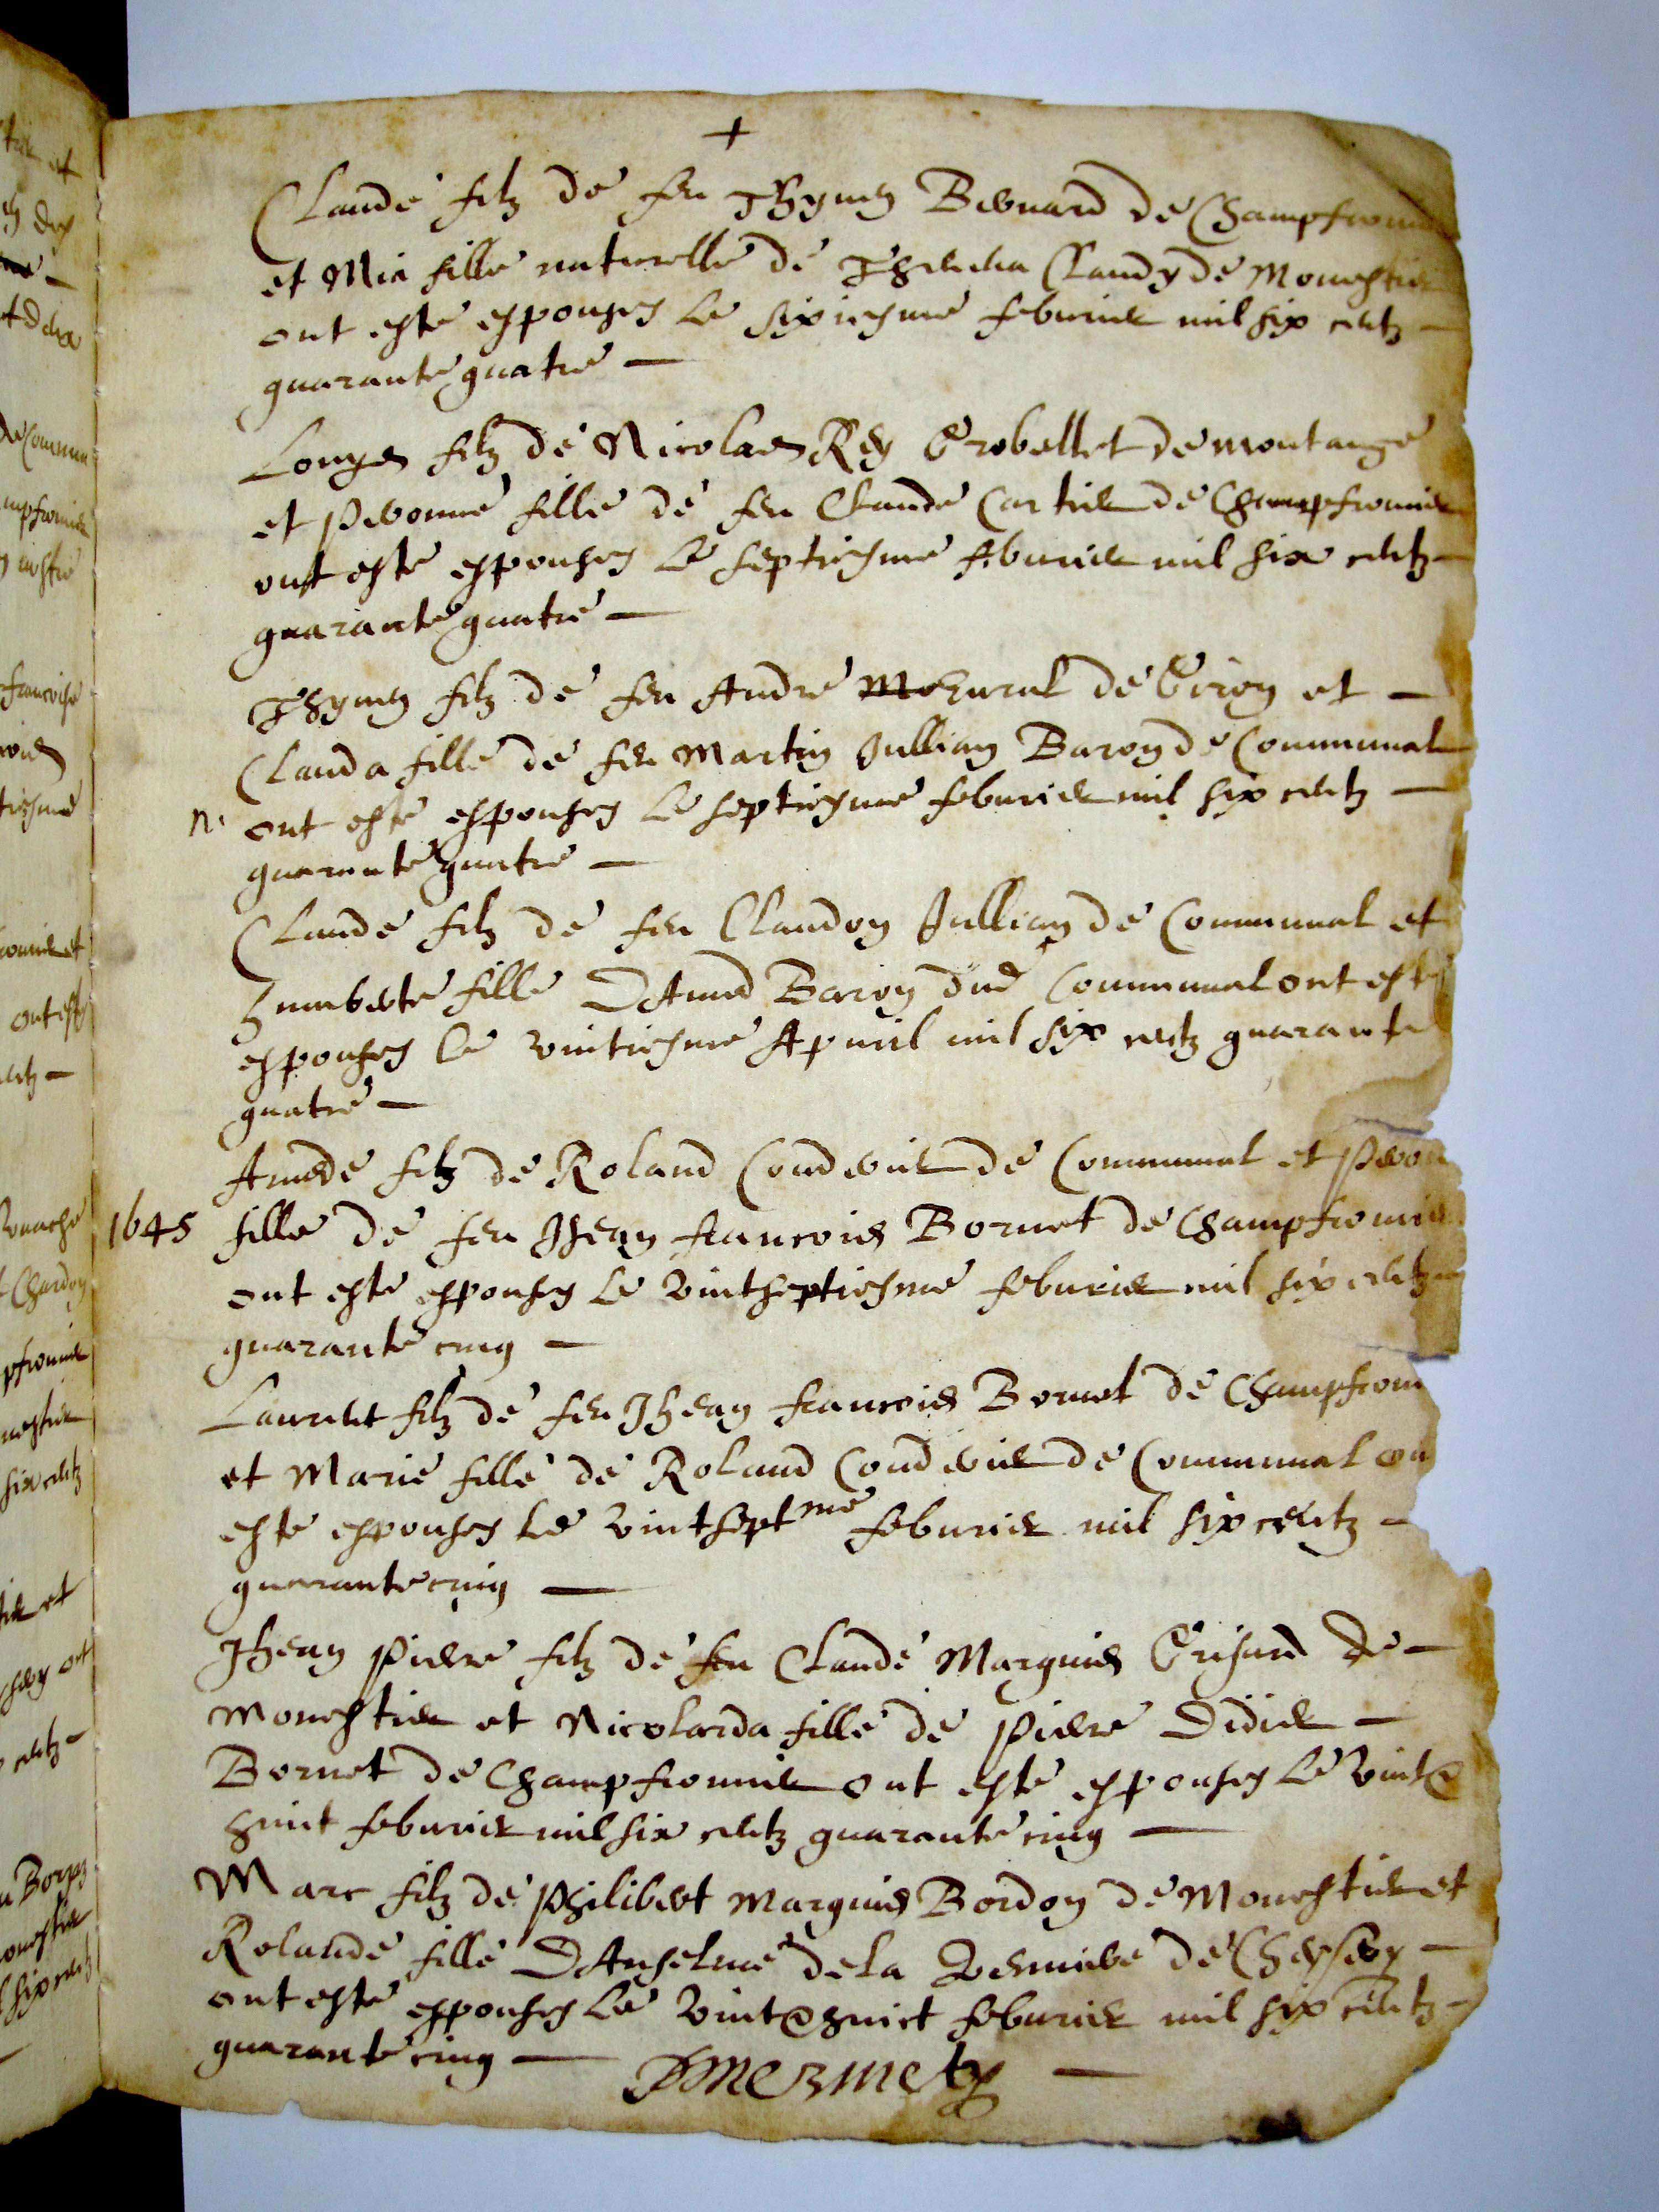 +
Claude filz de feu Thyuen Beuuard de Champfromi
et Mia fille naturelle de Claudy de Monestier
ont esté espousés le sixiesme feburier mil six centz —
quarante quatre —
Louys filz de Nicolas Rey Grobellet de montange
et Pernonne fille de feu Claude Cartier de Champfromier
ont esté espousés le septiesme feburier mil six centz —
quarante quatre —
Thyuen filz de feu André de Giron et —
Clauda fille de feu Martin Jullian Baron de Communal
n. ont esté espousés le septiesme feburier mil six centz —
quarante quatre —
Claude filz de feu Claudon Jullian de Communal et
humberte fille D'Amed Baron dud Communal ont esté
espousés le vintiesme Apuril mil six centz quarante
quatre —
Amede filz de Roland Coudurier de Communal et Perno
1645 fille de feu Jhean francois Bornet de Champfromier
ont esté espousés le vintseptiesme feburier mil six centz —
quarante cinq —
Laurent filz de feu Jhean francois Bornet de Champfrom
et Marie fille de Roland Coudurier de Communal on
esté espousés le vintseptme feburier mil six centz —
quarante cinq —
Jhean Pierre filz de feu Claude Marquis Grisard de —
Monestier et Nicolarda fille de Pierre Didier —
Bornet de Champfromier ont esté espousés le vint&
huict feburier mil six centz quarante cinq —
Marc filz de Philibert Marquis Bordon de Monestier et
Rolande fille D'Anselme de la de Chezery —
ont esté espousés le vint& huict feburier mil six centz —
quarante cinq — Mermetz —